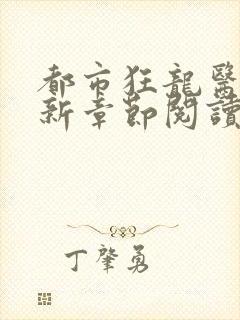 都市狂龍醫
新章節閱讀
丁肇勇